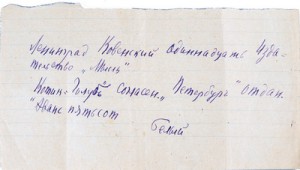 Ленинград Ковенский одиннадцать Изда-
тельство „Мысль"
Котик – Голубь согласен. „Петербург" отдан.
Аванс пятьсот
Белый